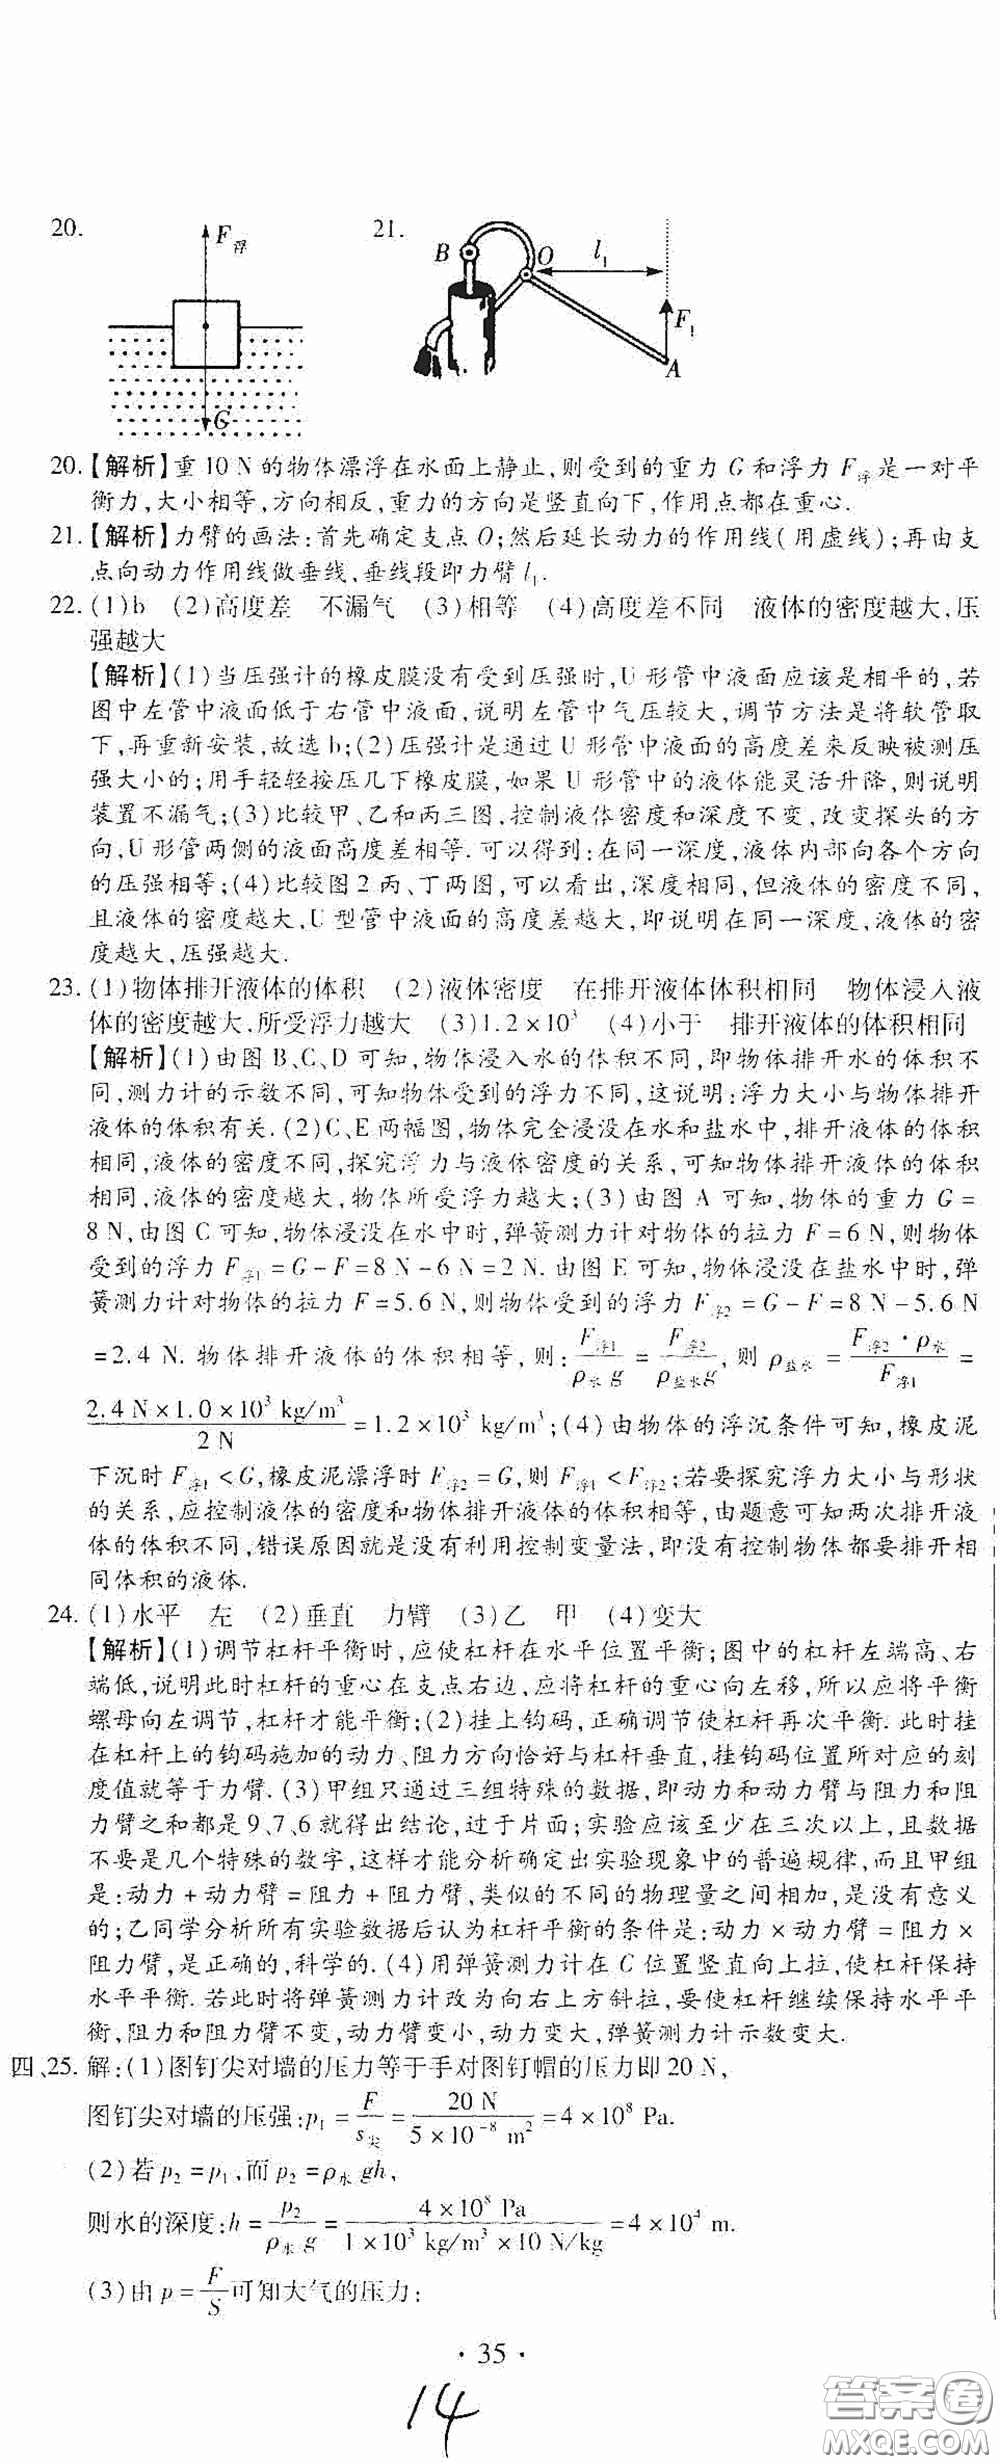 20.
F浮
G
21.
B
O
l₁
F₁
A
20.【解析】重 10 N 的物体漂浮在水面上静止,则受到的重力 G 和浮力 F浮是一对平
衡力,大小相等,方向相反,重力的方向是竖直向下,作用点都在重心.
21.【解析】力臂的画法:首先确定支点 O;然后延长动力的作用线(用虚线);再由支
点向动力作用线做垂线,垂线段即力臂 l₁.
22. (1)b (2)高度差 不漏气 (3)相等 (4)高度差不同 液体的密度越大,压
强越大
【解析】(1)当压强计的橡皮膜没有受到压强时,U 形管中液面应该是相平的,若
图中左管中液面低于右管中液面,说明左管中气压较大,调节方法是将软管取
下,再重新安装,故选 b;(2)压强计是通过 U 形管中液面的高度差来反映被测压
强大小的;用手轻轻按压几下橡皮膜,如果 U 形管中的液体能灵活升降,则说明
装置不漏气;(3)比较甲、乙和丙三图,控制液体密度和深度不变,改变探头的方
向,U 形管两侧的液面高度差相等.可以得到:在同一深度,液体内部向各个方向
的压强相等;(4)比较图 2 丙、丁两图,可以看出,深度相同,但液体的密度不同,
且液体的密度越大,U 型管中液面的高度差越大,即说明在同一深度,液体的密
度越大,压强越大.
23. (1)物体排开液体的体积 (2)液体密度 在排开液体体积相同 物体浸入液
体的密度越大,所受浮力越大 (3)1.2×10³ (4)小于 排开液体的体积相同
【解析】(1)由图 B、C、D 可知,物体浸入水的体积不同,即物体排开水的体积不
同,测力计的示数不同,可知物体受到的浮力不同,这说明:浮力大小与物体排开
液体的体积有关.(2)C、E 两幅图,物体完全浸没在水和盐水中,排开液体的体积
相同,液体的密度不同,探究浮力与液体密度的关系,可知物体排开液体的体积
相同,液体的密度越大,物体所受浮力越大;(3)由图 A 可知,物体的重力 G=
8 N,由图 C 可知,物体浸没在水中时,弹簧测力计对物体的拉力 F=6 N,则物体
受到的浮力 F浮1=G-F=8 N-6 N=2 N.由图 E 可知,物体浸没在盐水中时,弹
簧测力计对物体的拉力 F=5.6 N,则物体受到的浮力 F浮2=G-F=8 N-5.6 N
=2.4 N.物体排开液体的体积相等,则:F浮1/ρ水g=F浮2/ρ盐水g,则 ρ盐水=F浮2·ρ水/F浮1=
2.4 N×1.0×10³ kg/m³/2 N=1.2×10³ kg/m³;(4)由物体的浮沉条件可知,橡皮泥
下沉时 F浮1<G,橡皮泥漂浮时 F浮2=G,则 F浮1<F浮2;若要探究浮力大小与形状
的关系,应控制液体的密度和物体排开液体的体积相等,由题意可知两次排开液
体的体积不同,错误原因就是没有利用控制变量法,即没有控制物体都要排开相
同体积的液体.
24. (1)水平 左 (2)垂直 力臂 (3)乙 甲 (4)变大
【解析】(1)调节杠杆平衡时,应使杠杆在水平位置平衡;图中的杠杆左端高、右
端低,说明此时杠杆的重心在支点右边,应将杠杆的重心向左移,所以应将平衡
螺母向左调节,杠杆才能平衡;(2)挂上钩码,正确调节使杠杆再次平衡.此时挂
在杠杆上的钩码施加的动力、阻力方向恰好与杠杆垂直,挂钩码位置所对应的刻
度值就等于力臂.(3)甲组只通过三组特殊的数据,即动力和动力臂与阻力和阻
力臂之和都是 9、7、6 就得出结论,过于片面;实验应该至少在三次以上,且数据
不要是几个特殊的数字,这样才能分析确定出实验现象中的普遍规律,而且甲组
是:动力+动力臂=阻力+阻力臂,类似的不同的物理量之间相加,是没有意义
的;乙同学分析所有实验数据后认为杠杆平衡的条件是:动力×动力臂=阻力×
阻力臂,是正确的,科学的.(4)用弹簧测力计在 C 位置竖直向上拉,使杠杆保持
水平平衡.若此时将弹簧测力计改为向右上方斜拉,要使杠杆继续保持水平平
衡,阻力和阻力臂不变,动力臂变小,动力变大,弹簧测力计示数变大.
四、25. 解:(1)图钉尖对墙的压力等于手对图钉帽的压力即 20 N,
图钉尖对墙的压强:p₁=F/s尖=20 N/5×10⁻⁸ m²=4×10⁸ Pa.
(2)若 p₂=p₁,而 p₂=ρ水gh,
则水的深度:h=p₂/ρ水g=4×10⁸ Pa/1×10³ kg/m³×10 N/kg=4×10⁴ m.
(3)由 p=F/S可知大气的压力:
·35·
14
答案圈
MXQE.COM